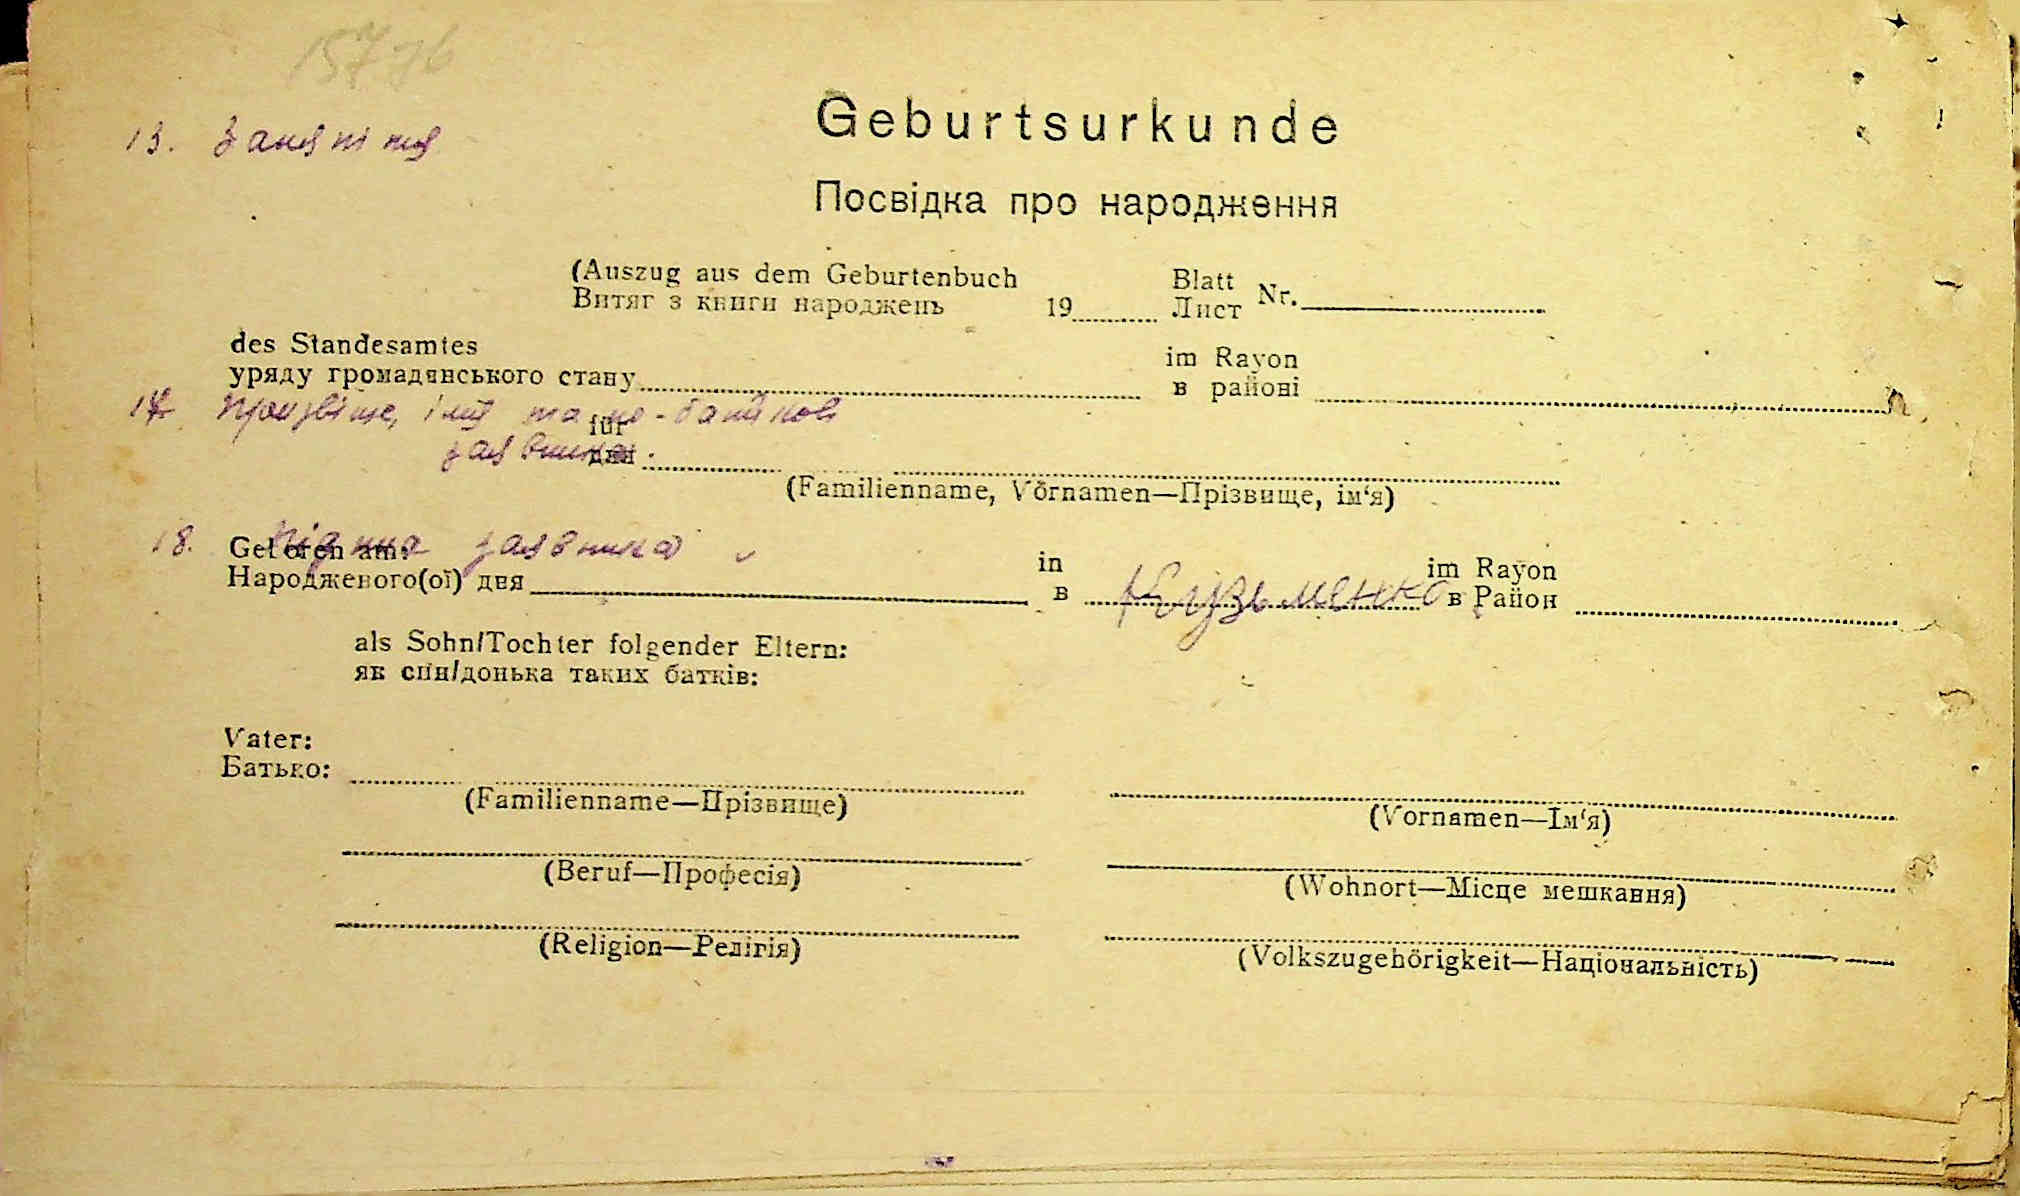 15776
13. Заняття
Geburtsurkunde
Посвідка про народження
(Auszug aus dem Geburtenbuch Blatt
Витяг з книги народжень 19 Лист Nr.
des Standesamtes im Rayon
уряду громадянського стану в районі
17. Прізвіще, імя та по-батькові
für
заявника.
для
(Familienname, Vornamen—Прізвище, ім‘я)
18. Підпис заявника
Geboren am: in im Rayon
Народженого(ої) дня в Кузьменко в Район
als Sohn/Tochter folgender Eltern:
як син/донька таких батків:
Vater:
Батько:
(Familienname—Прізвище) (Vornamen—Ім‘я)
(Beruf—Професія) (Wohnort—Місце мешкання)
(Religion—Релігія) (Volkszugehörigkeit—Національність)